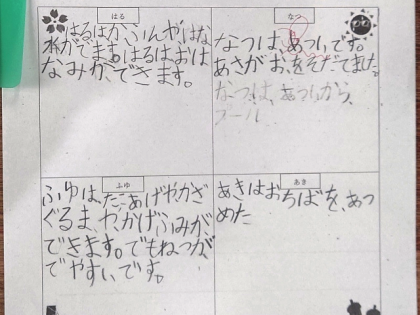 はる
はるはかふんやはな
水がでます。はるはおは
なみができます。
なつ
なつは、あついです。
あさがお、をそだてました。
なつは、あついから、
プール
ふゆ
ふゆは、たこあげやかざ
ぐるま、や、かげふみが、
できます。でもねつが、
でやすいです。
あき
あきはおちばを、あつ
めた